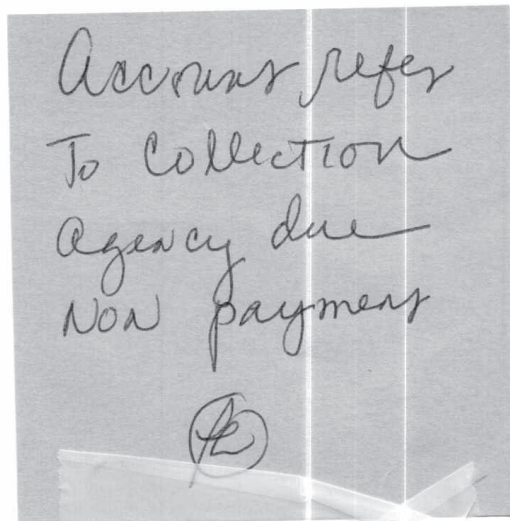 Account refer
To Collection
agency due
NON payment